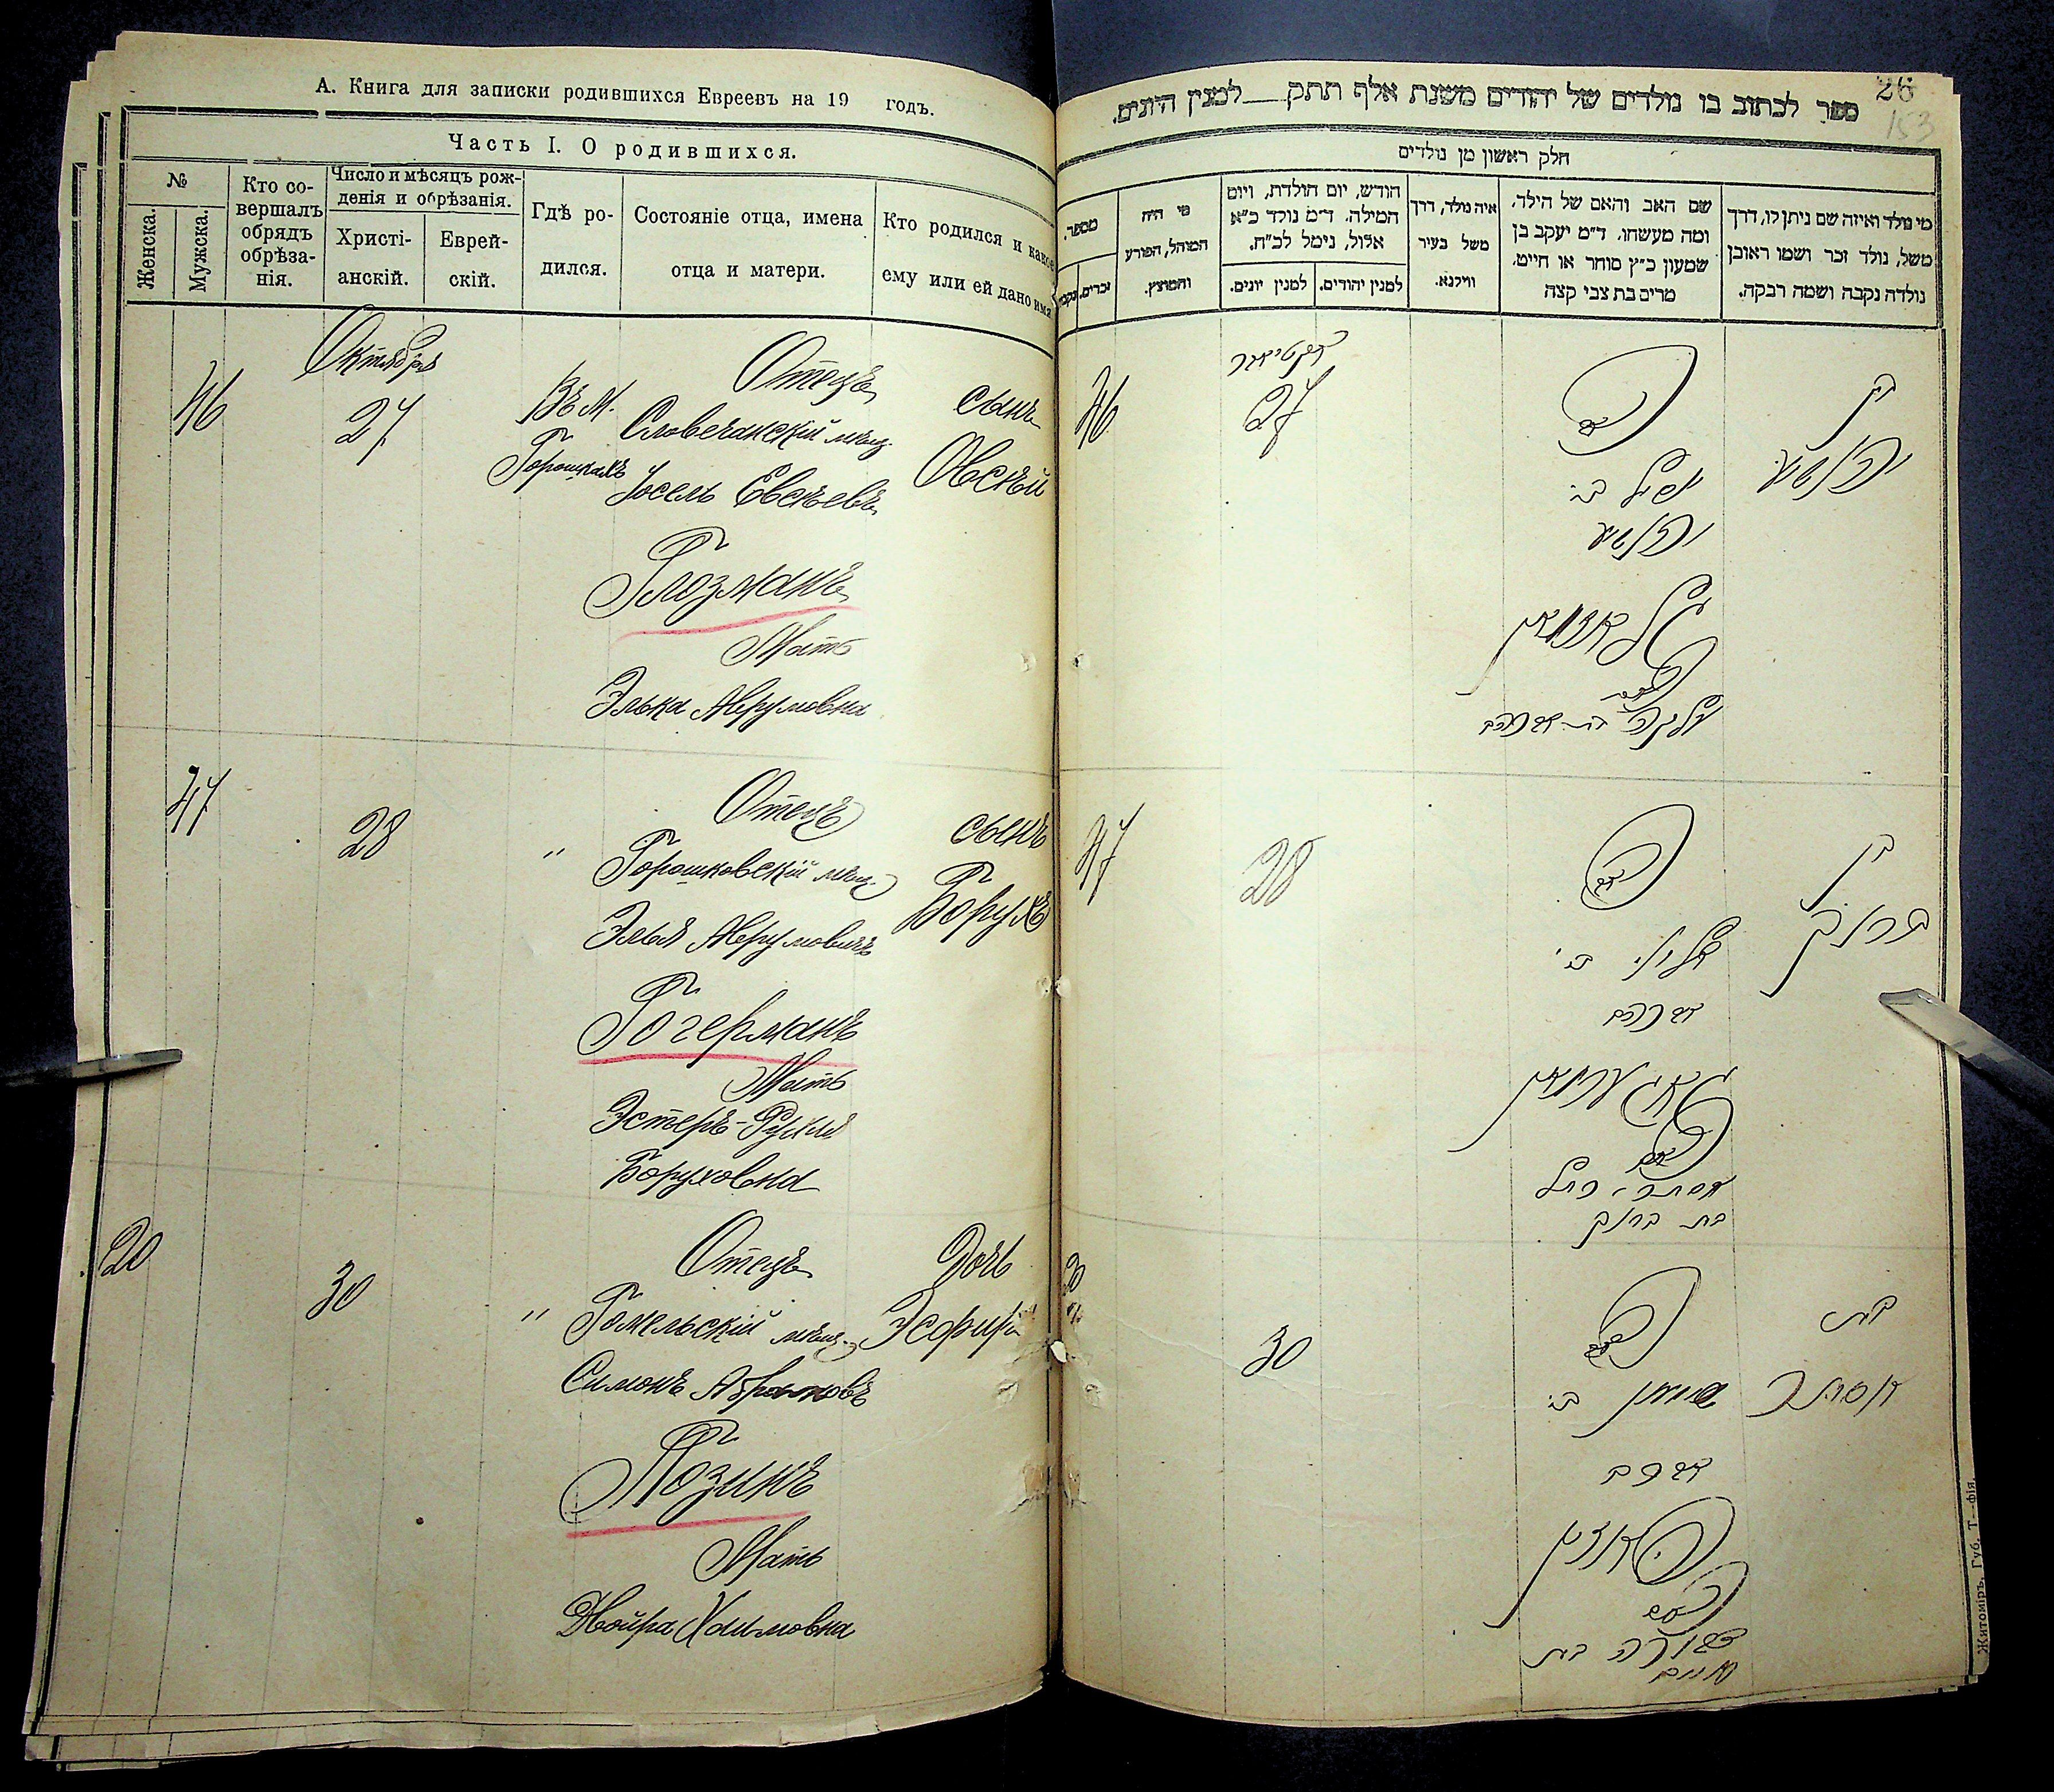 А. Книга для записки родившихся Евреевъ на 19 годъ.
Часть I. О родившихся.
№
Женска.
Мужска.
Кто со-
вершалъ
обрядъ
обрѣза-
нія.
Число и мѣсяцъ рож-
денія и обрѣзанія.
Христі-
анскій.
Еврей-
скій.
Гдѣ ро-
дился.
Состояніе отца, имена
отца и матери.
Кто родился и какое
ему или ей дано имя
Октября
46
27
Въ м.
Горошкахъ
Отецъ
Словечанскій мѣщ.
Іосель Евсѣевъ
Глозманъ
Мать
Элька Аврумовна
сынъ
Овсѣй
47
28
"
Отецъ
Горошковскій мѣщ.
Элья Аврумовичъ
Гогерманъ
Мать
Эстеръ-Рухля
Боруховна
сынъ
Борухъ
20
30
"
Отецъ
Гомельскій мѣщ.
Симонъ Абрамовъ
Позинъ
Мать
Двойра Хаимовна
Дочь
Эсфирь
26
153
ספר לכתוב בו נולדים של יהודים משנת אלף תתק למנין היונים.
חלק ראשון מן נולדים
מספר.
נקבות
זכרים.
מי היה
המוהל, הפורע
והמוצץ.
חודש, יום הולדת, ויום
המילה. ד״מ נולד כ״א
אלול, נימל לכ״ח.
למנין יונים.
למנין יהודים.
איה נולד, דרך
משל בעיר
ווילנא.
שם האב והאם של הילד,
ומה מעשהו. ד״מ יעקב בן
שמעון כ״ץ סוחר או חייט.
מרים בת צבי קצה
מי נולד ואיזה שם ניתן לו, דרך
משל, נולד זכר ושמו ראובן
נולדה נקבה ושמה רבקה.
אקטיאבר
46
27
אב
יוסף ב׳
יהושע
גלאזמאן
אם
עלקה בת אברהם
בן
יהושע
47
28
אב
אליי׳ ב׳
אברהם
גאגערמאן
אם
אסתר רחל
בת ברוך
בן
ברוך
20
30
אב
שימון ב׳
אברהם
פאזין
אם
דבורה בת
חיים
בת
אסתר
Житоміръ, Губ. Т—фія.